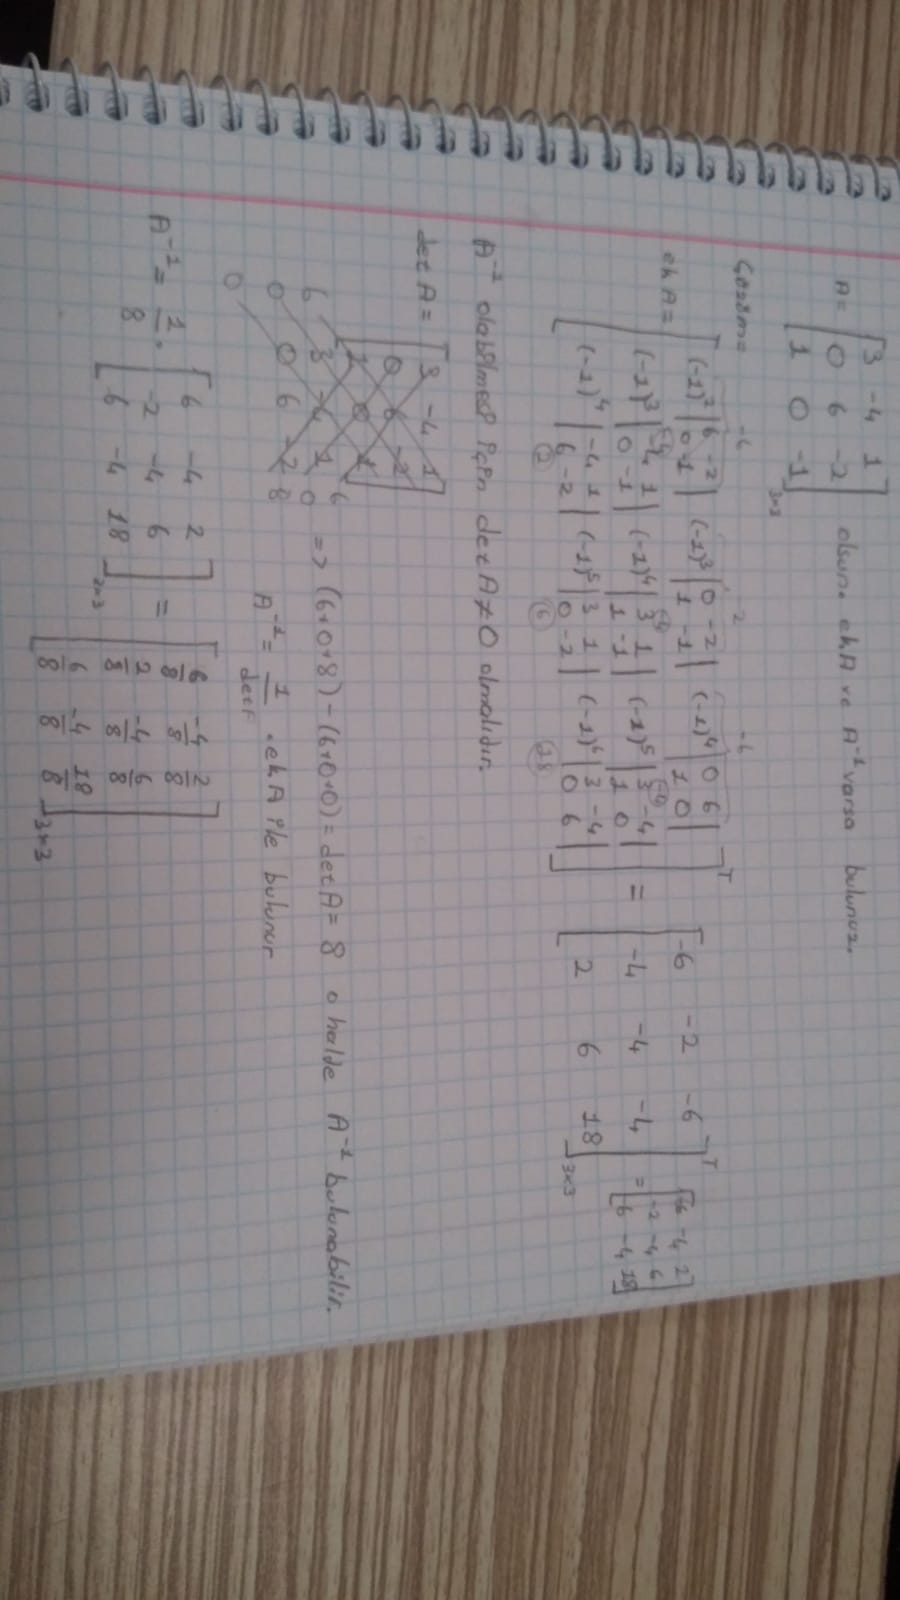 A = [3 -4 1
0 6 -2
1 0 -1]3x3 olsun. ekA ve A⁻¹ varsa bulunuz.
Çözüm=
-6 -2 -6
ekA = [(-1)² |6 -2 / 0 -1| (-1)³ |0 -2 / 1 -1| (-1)⁴ |0 6 / 1 0|
(-1)³ |-4 1 / 0 -1| (-1)⁴ |3 1 / 1 -1| (-1)⁵ |3 -4 / 1 0|
(-1)⁴ |-4 1 / 6 -2| (-1)⁵ |3 1 / 0 -2| (-1)⁶ |3 -4 / 0 6|]ᵀ
= [-6 -2 -6
-4 -4 -4
2 6 18]ᵀ3x3
= [6 -4 2
-2 -4 6
6 -4 18]
2 6 18
A⁻¹ olabilmesi için det A ≠ 0 olmalıdır.
det A = [3 -4 1
0 6 -2
1 0 1]
6 3 -4 1 6
0 0 6 -2 0
0 8
=> (6+0+8) - (6+0+0) = det A = 8 o halde A⁻¹ bulunabilir.
A⁻¹ = 1/detA . ekA ile bulunur
A⁻¹ = 1/8 . [6 -4 2
-2 -4 6
6 -4 18]3x3
= [6/8 -4/8 2/8
2/8 -4/8 6/8
6/8 -4/8 18/8]3x3